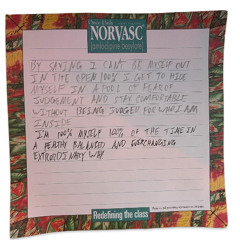 Once-Daily
NORVASC
(amlodipine besylate)
BY SAYING I CANT BE MYSELF OUT
IN THE OPEN 100% I GET TO HIDE
MYSELF IN A POOL OF FEAR OF
JUDGEMENT AND STAY COMFORTABLE
WITHOUT BEING JUDGED FOR WHO I AM
INSIDE
I'M 100% MYSELF 100% OF THE TIME IN
A HEALTHY BALANCED AND EVERCHANGING
EXTRORDINARY WAY
Redefining the class